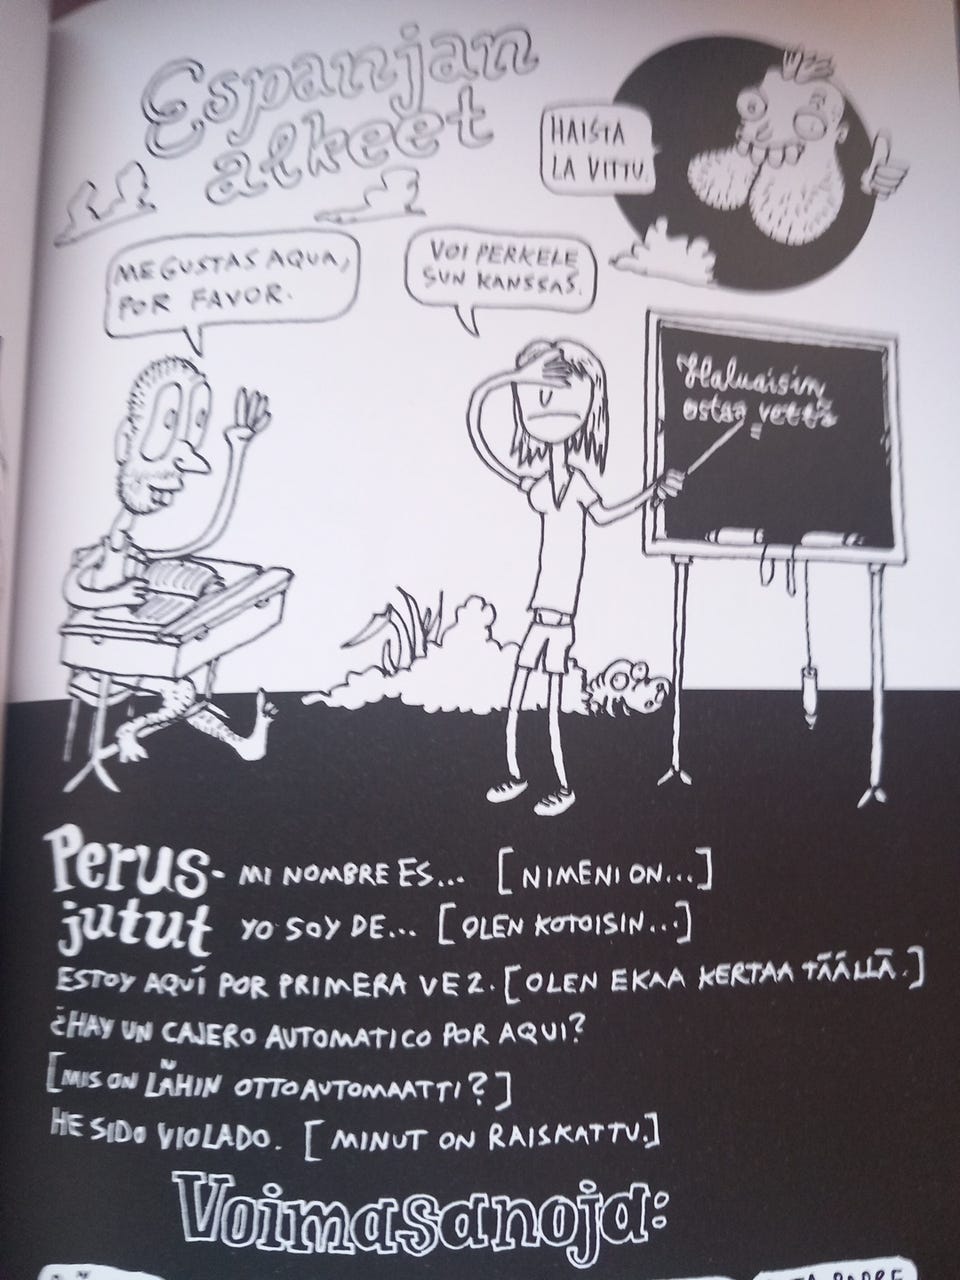 Espanjan
alkeet
HAISTA
LA VITTU.
ME GUSTAS AQUA,
POR FAVOR.
VOI PERKELE
SUN KANSSAS.
Haluaisin
ostaa vettä
Perus-
jutut
MI NOMBRE ES... [NIMENI ON...]
YO SOY DE... [OLEN KOTOISIN...]
ESTOY AQUÍ POR PRIMERA VEZ. [OLEN EKAA KERTAA TÄÄLLÄ.]
¿HAY UN CAJERO AUTOMATICO POR AQUI?
[MIS ON LÄHIN OTTOAUTOMAATTI?]
HE SIDO VIOLADO. [MINUT ON RAISKATTU.]
Voimasanoja: